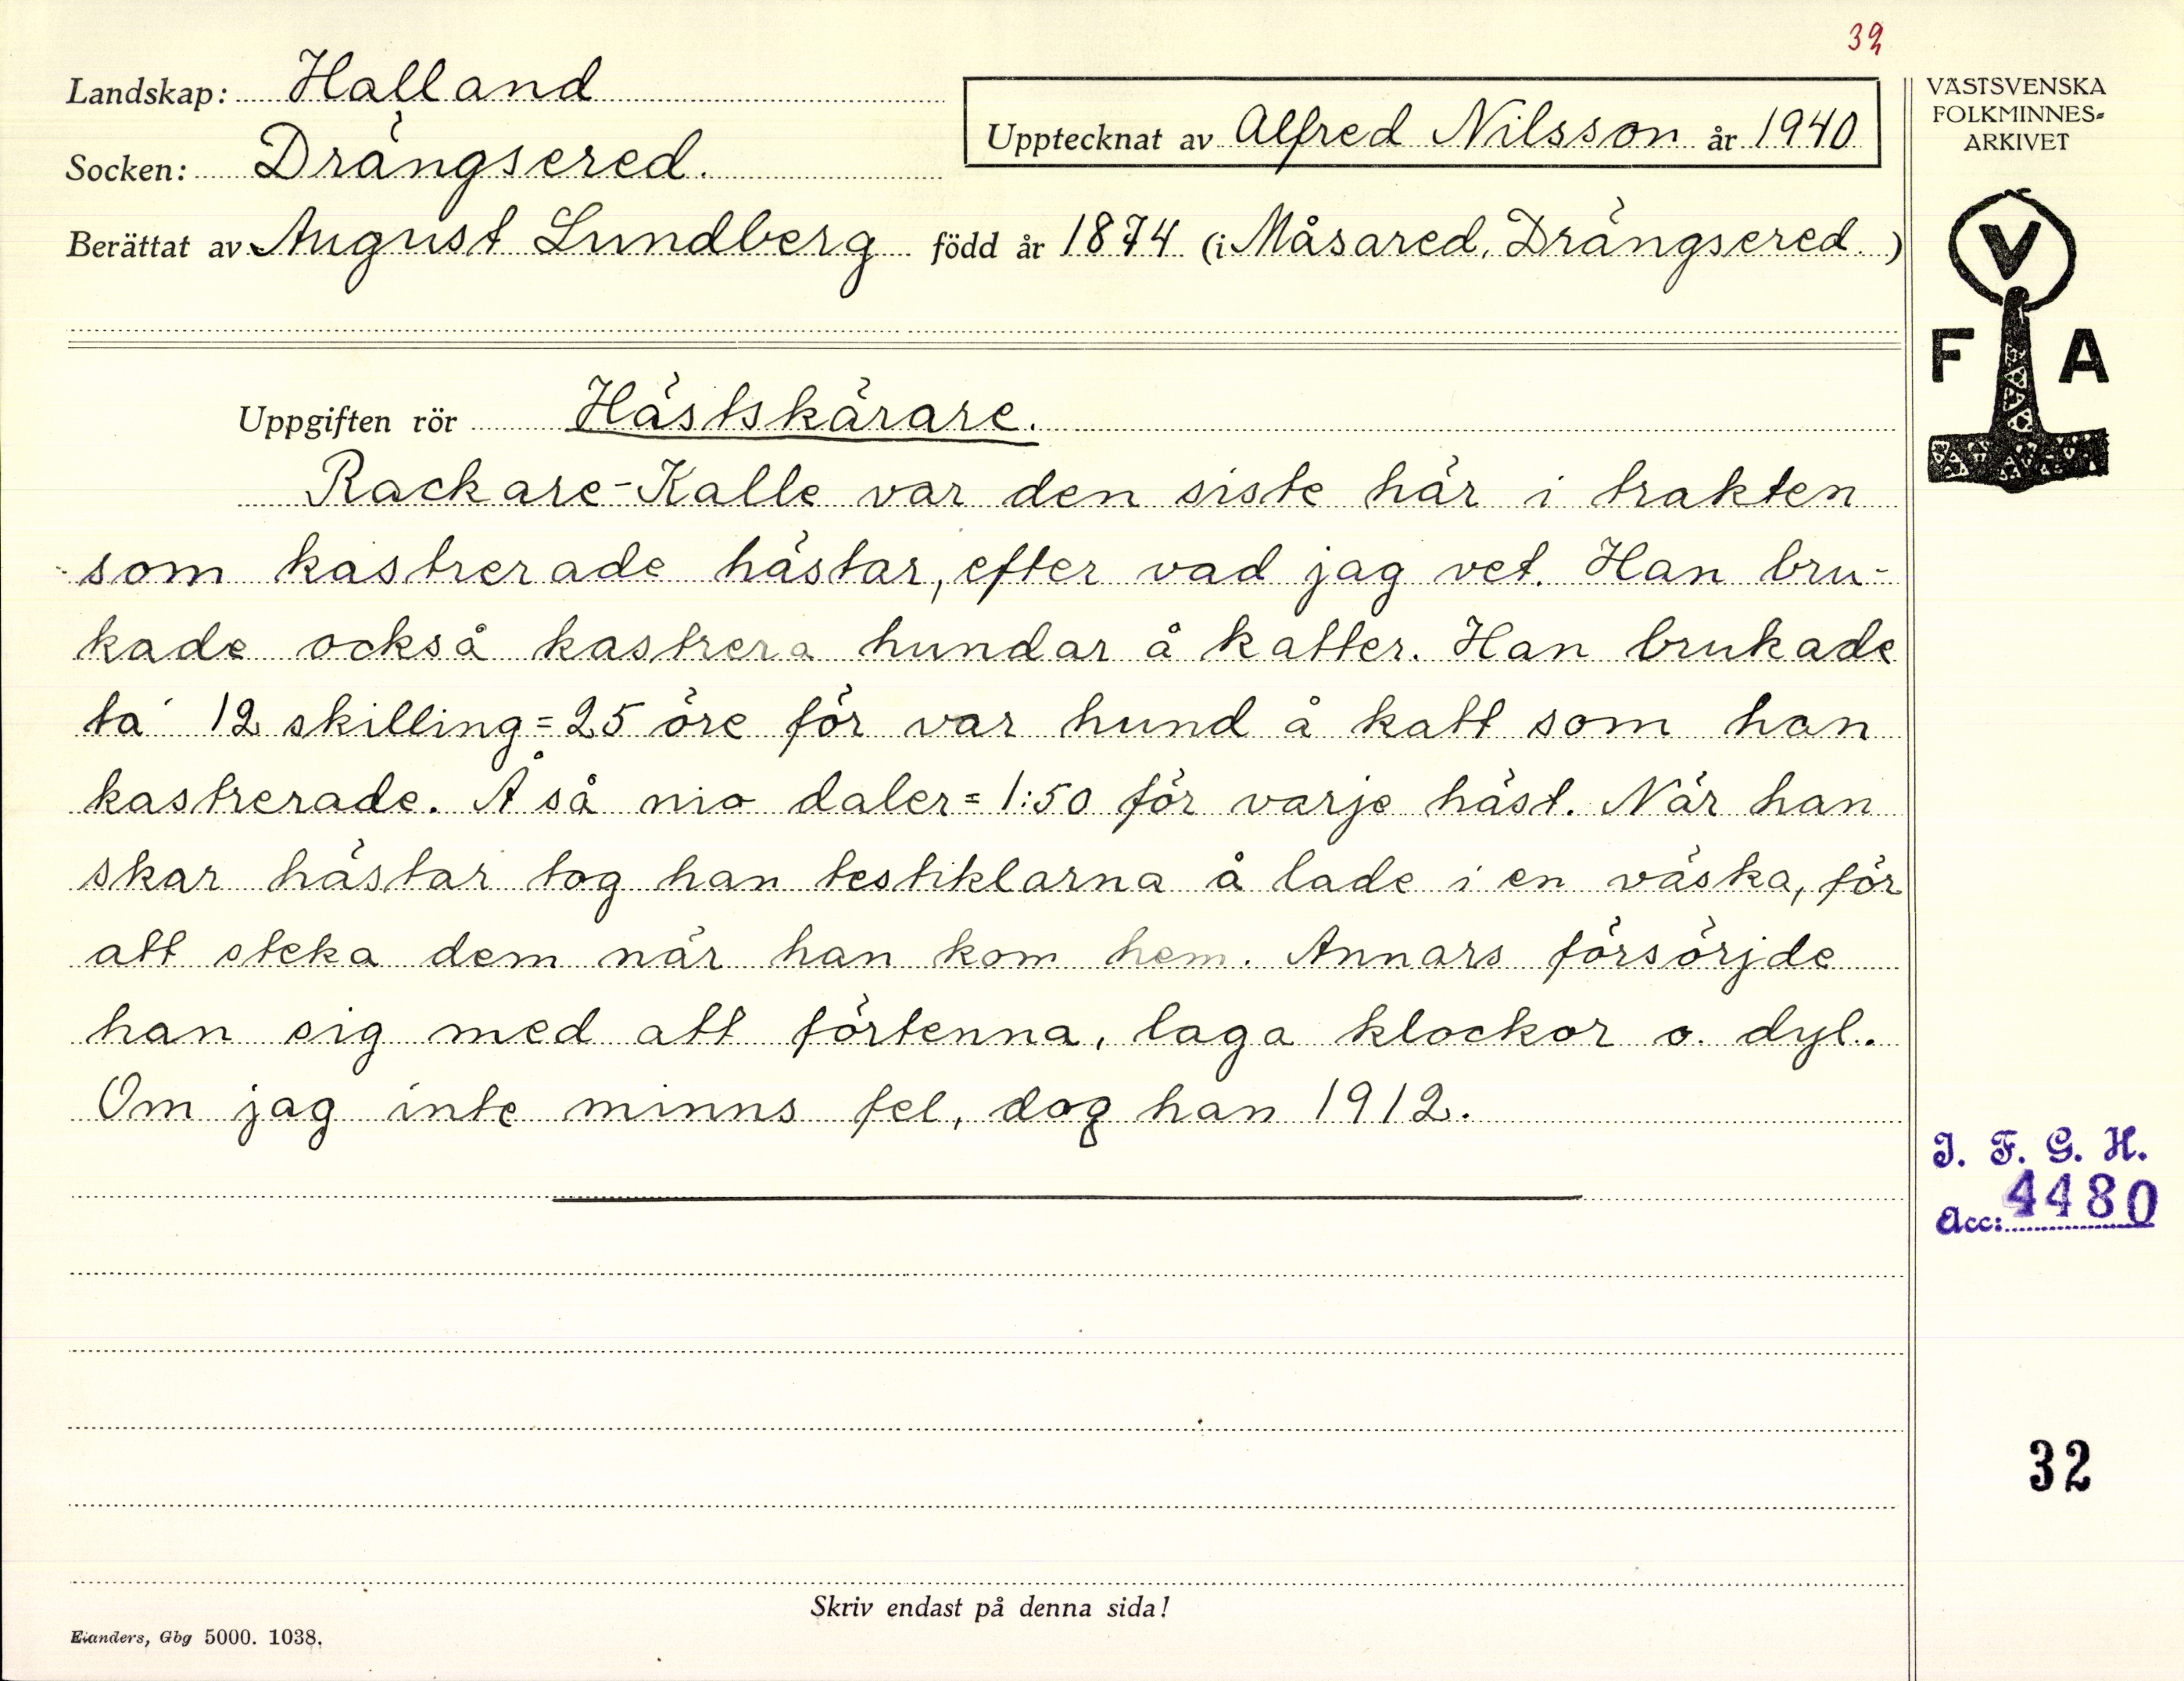 39
Landskap: Halland
Socken: Drängsered.
Upptecknat av Alfred Nilsson år 1940
Berättat av August Lundberg född år 1874 (i Måsared, Drängsered.)
Uppgiften rör Hästskärare.
Rackare-Kalle var den siste här i trakten
som kastrerade hästar, efter vad jag vet. Han bru-
kade också kastrera hundar å katter. Han brukade
ta 12 skilling = 25 öre för var hund å katt som han
kastrerade. Å så nio daler = 1:50 för varje häst. När han
skar hästar tog han testiklarna å lade i en väska, för
att steka dem när han kom hem. Annars försörjde
han sig med att förtenna, laga klockor o. dyl.
Om jag inte minns fel, dog han 1912.
Skriv endast på denna sida!
Elanders, Gbg 5000. 1038.
VÄSTSVENSKA
FOLKMINNES-
ARKIVET
V
F A
I. F. G. H.
Acc: 4480
32